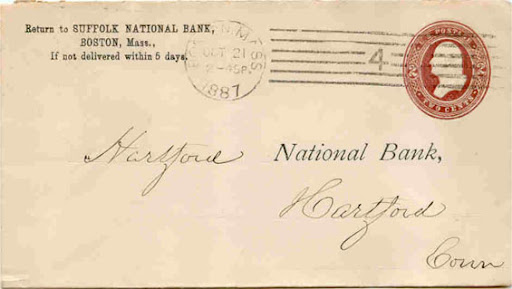 Return to SUFFOLK NATIONAL BANK,
BOSTON, Mass.,
If not delivered within 5 days.
MASS
OCT 21
45P
1887
4
U.S. POSTAGE
TWO CENTS
Hartford National Bank,
Hartford
Conn